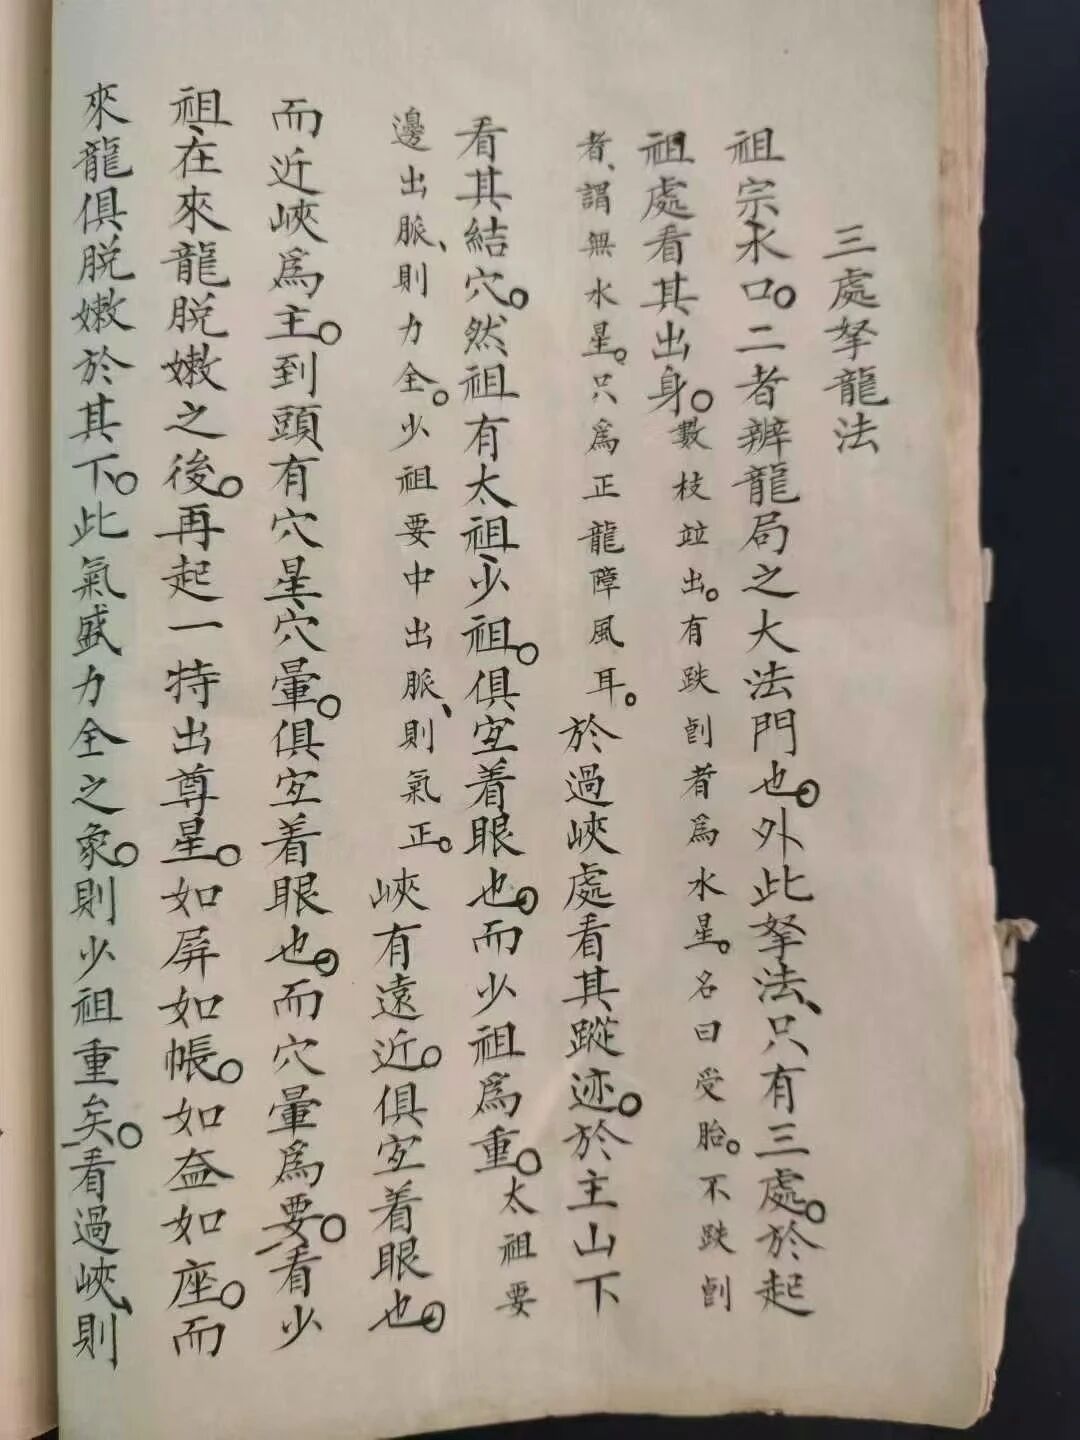 三處拏龍法
祖宗水口。二者辨龍局之大法門也。外此拏法、只有三處。於起
祖處看其出身。數枝竝出。有跌者爲水星。名曰受胎。不跌
者、謂無水星。只爲正龍障風耳。於過峽處看其蹤迹。於主山下
看其結穴。然祖有太祖、少祖。俱宐着眼也。而少祖爲重。太祖要
邊出脈、則力全。少祖要中出脈、則氣正。峽有遠近。俱宐着眼也。
而近峽爲主。到頭有穴星、穴暈。俱宐着眼也。而穴暈爲要。看少
祖、在來龍脱嫩之後。再起一特出尊星。如屏如帳。如益如座。而
來龍俱脱嫩於其下。此氣盛力全之象。則少祖重矣。看過峽、則